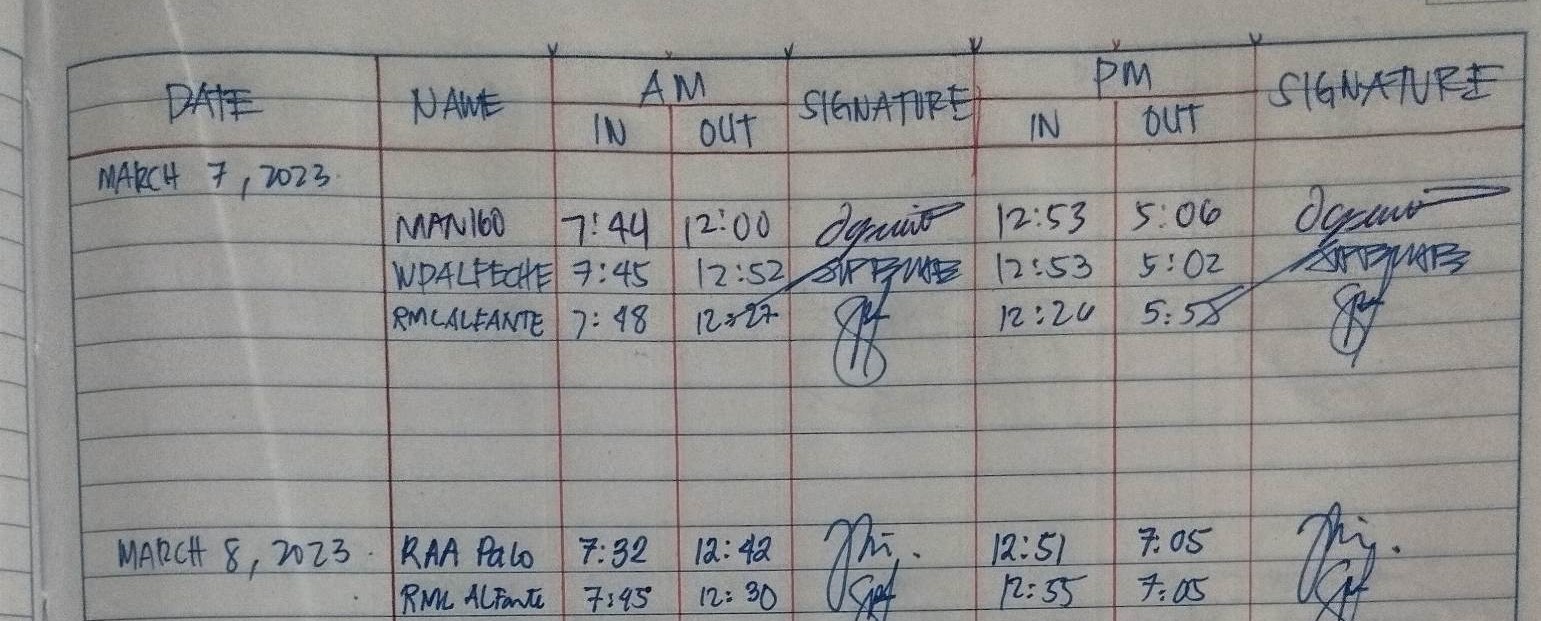 DATE NAME AM SIGNATURE PM SIGNATURE
IN OUT IN OUT
MARCH 7, 2023
MANIGO 7:44 12:00 12:53 5:06
WDALFECHE 7:45 12:52 12:53 5:02
RMCALFANTE 7:48 12:27 12:26 5:58
MARCH 8, 2023 RAA Palo 7:32 12:42 12:51 7:05
RML ALFante 7:45 12:30 12:55 7:05